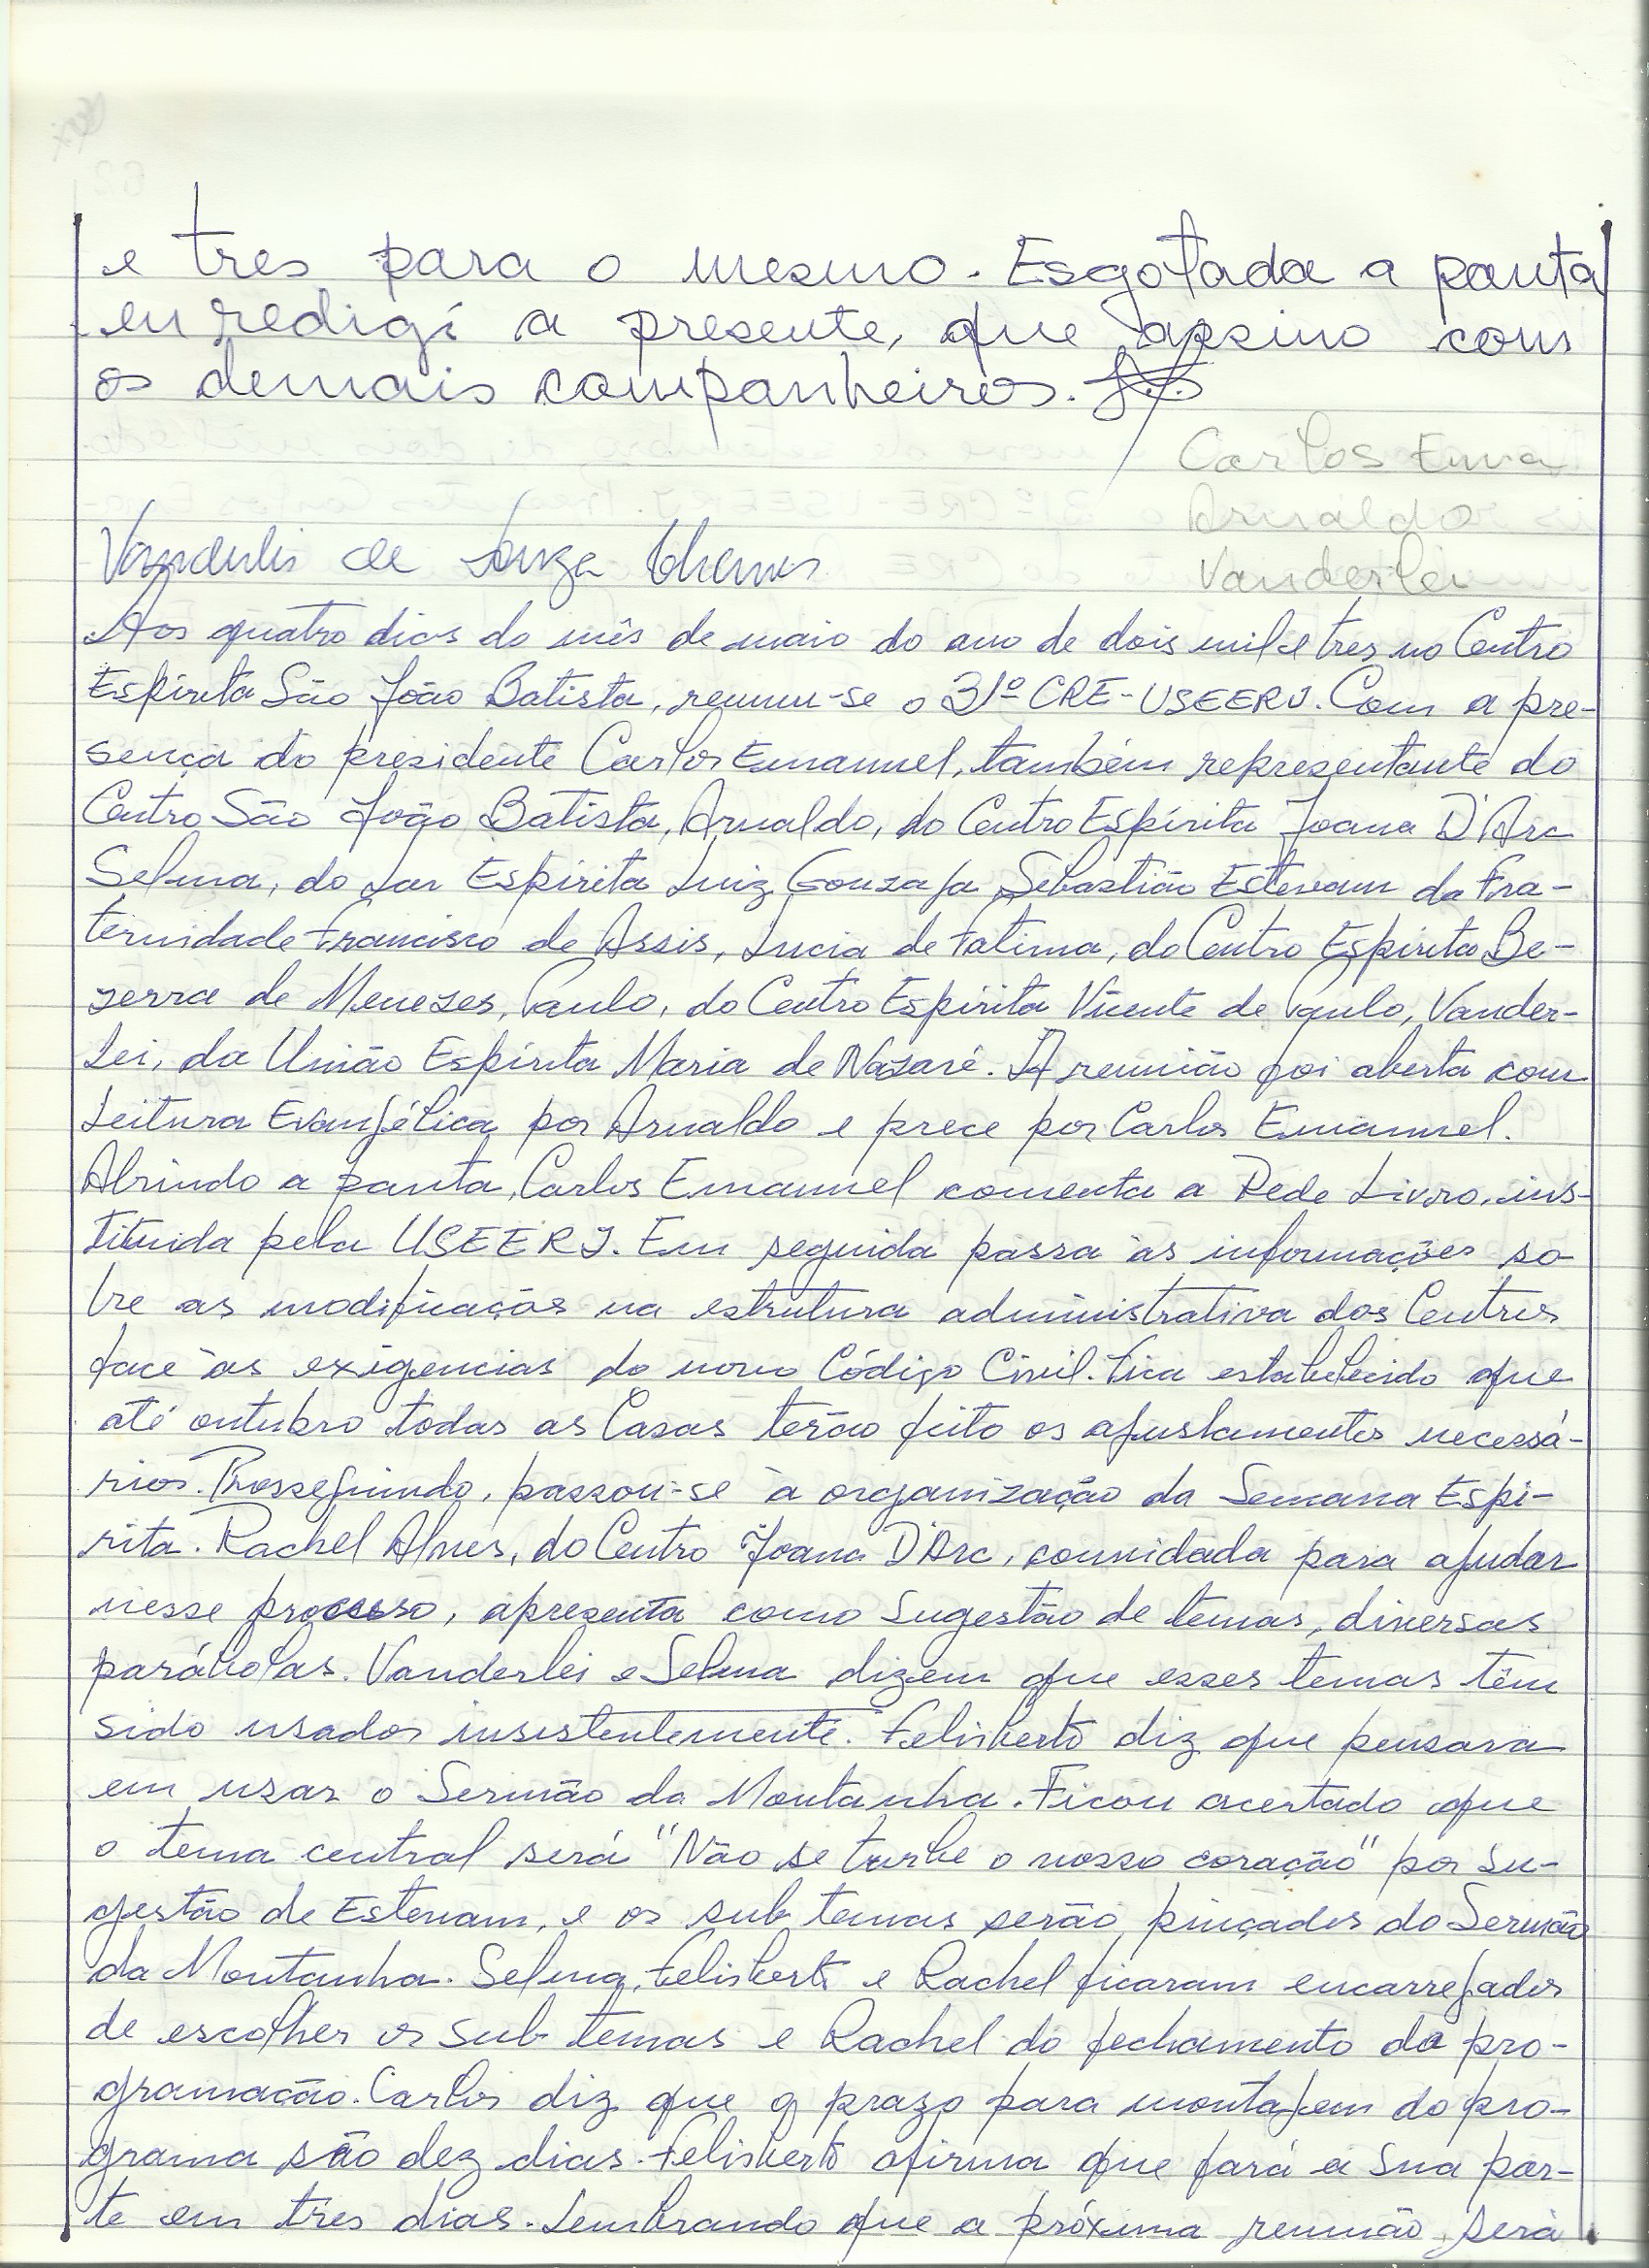 e tres para o mesmo. Esgotada a pauta
eu redigí a presente, que assino com
os demais companheiros.
Carlos Ema
Arnaldo
Vanderlei
Vanderlei de Souza
Aos quatro dias do mês de maio do ano de dois mil e tres no Centro
Espírita São João Batista, reuniu-se o 31º CRE-USEERJ. Com a pre-
sença do presidente Carlos Emannuel, também representante do
Centro São João Batista, Arnaldo, do Centro Espírita Joana D'Arc
Selma, do Lar Espírita Luiz Gonzaga, Sebastião Estevam da Fra-
ternidade Francisco de Assis, Lucia de Fatima, do Centro Espírita Be-
zerra de Menezes, Paulo, do Centro Espírita Vicente de Paulo, Vander-
Lei, da União Espírita Maria de Nazaré. A reunião foi aberta com
Leitura Evangélica por Arnaldo e prece por Carlos Emannuel.
Abrindo a pauta, Carlos Emannuel comenta a Rede Livro, ins-
tituida pela USEERJ. Em seguida passa às informações so-
bre as modificaçãs na estrutura administrativa dos Centros
face às exigencias do novo Código Civil. Fica estabelecido que
até outubro todas as Casas terão feito os ajustamentos necessá-
rios. Prosseguindo, passou-se à organização da Semana Espí-
rita. Rachel Alves, do Centro Joana D'Arc, convidada para ajudar
nesse processo, apresenta como sugestão de temas, diversas
parábolas. Vanderlei e Selma dizem que esses temas têm
sido usados insistentemente. Felisberto diz que pensava
em usar o Sermão da Montanha. Ficou acertado que
o tema central será "Não se turbe o vosso coração" por su-
gestão de Estevam, e os sub temas serão pinçados do Sermão
da Montanha. Selma, Felisberto e Rachel ficaram encarregados
de escolher os sub temas e Rachel do fechamento da pro-
gramação. Carlos diz que o prazo para montagem do pro-
grama são dez dias. Felisberto afirma que fará a sua par-
te em três dias. Lembrando que a próxima reunião será